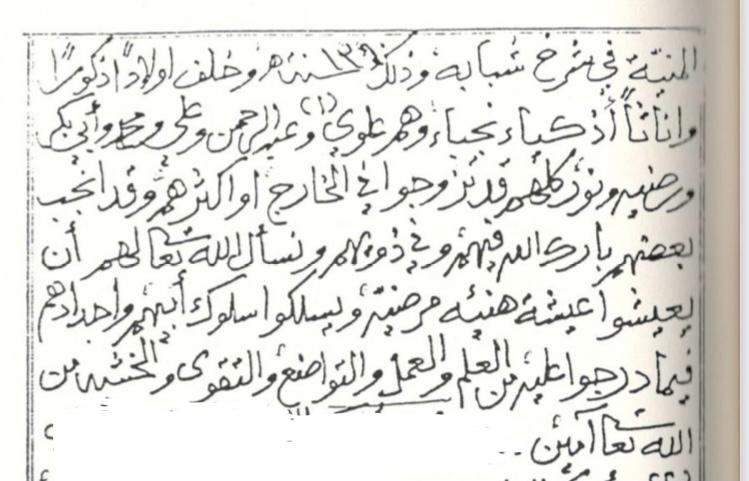 المنية في شرخ شبابه وذلك سنة ١٣٩ هـ وخلف اولاداً ذكوراً
واناثاً أذكياء نجباء وهم علوي (١) وعبد الرحمن وعلي ومحمد وأبي بكر
ورضية ونور كلهم قد تزوجوا في الخارج او اكثرهم وقد انجب
بعضهم بارك الله فيهم وفي ذويهم ونسأل الله تعالى لهم أن
يعيشوا عيشة هنيئه مرضية ويسلكوا سلوك أبيهم واجدادهم
فيما درجوا عليه من العلم والعمل والتواضع والتقوى والخشية من
الله تعا آمين